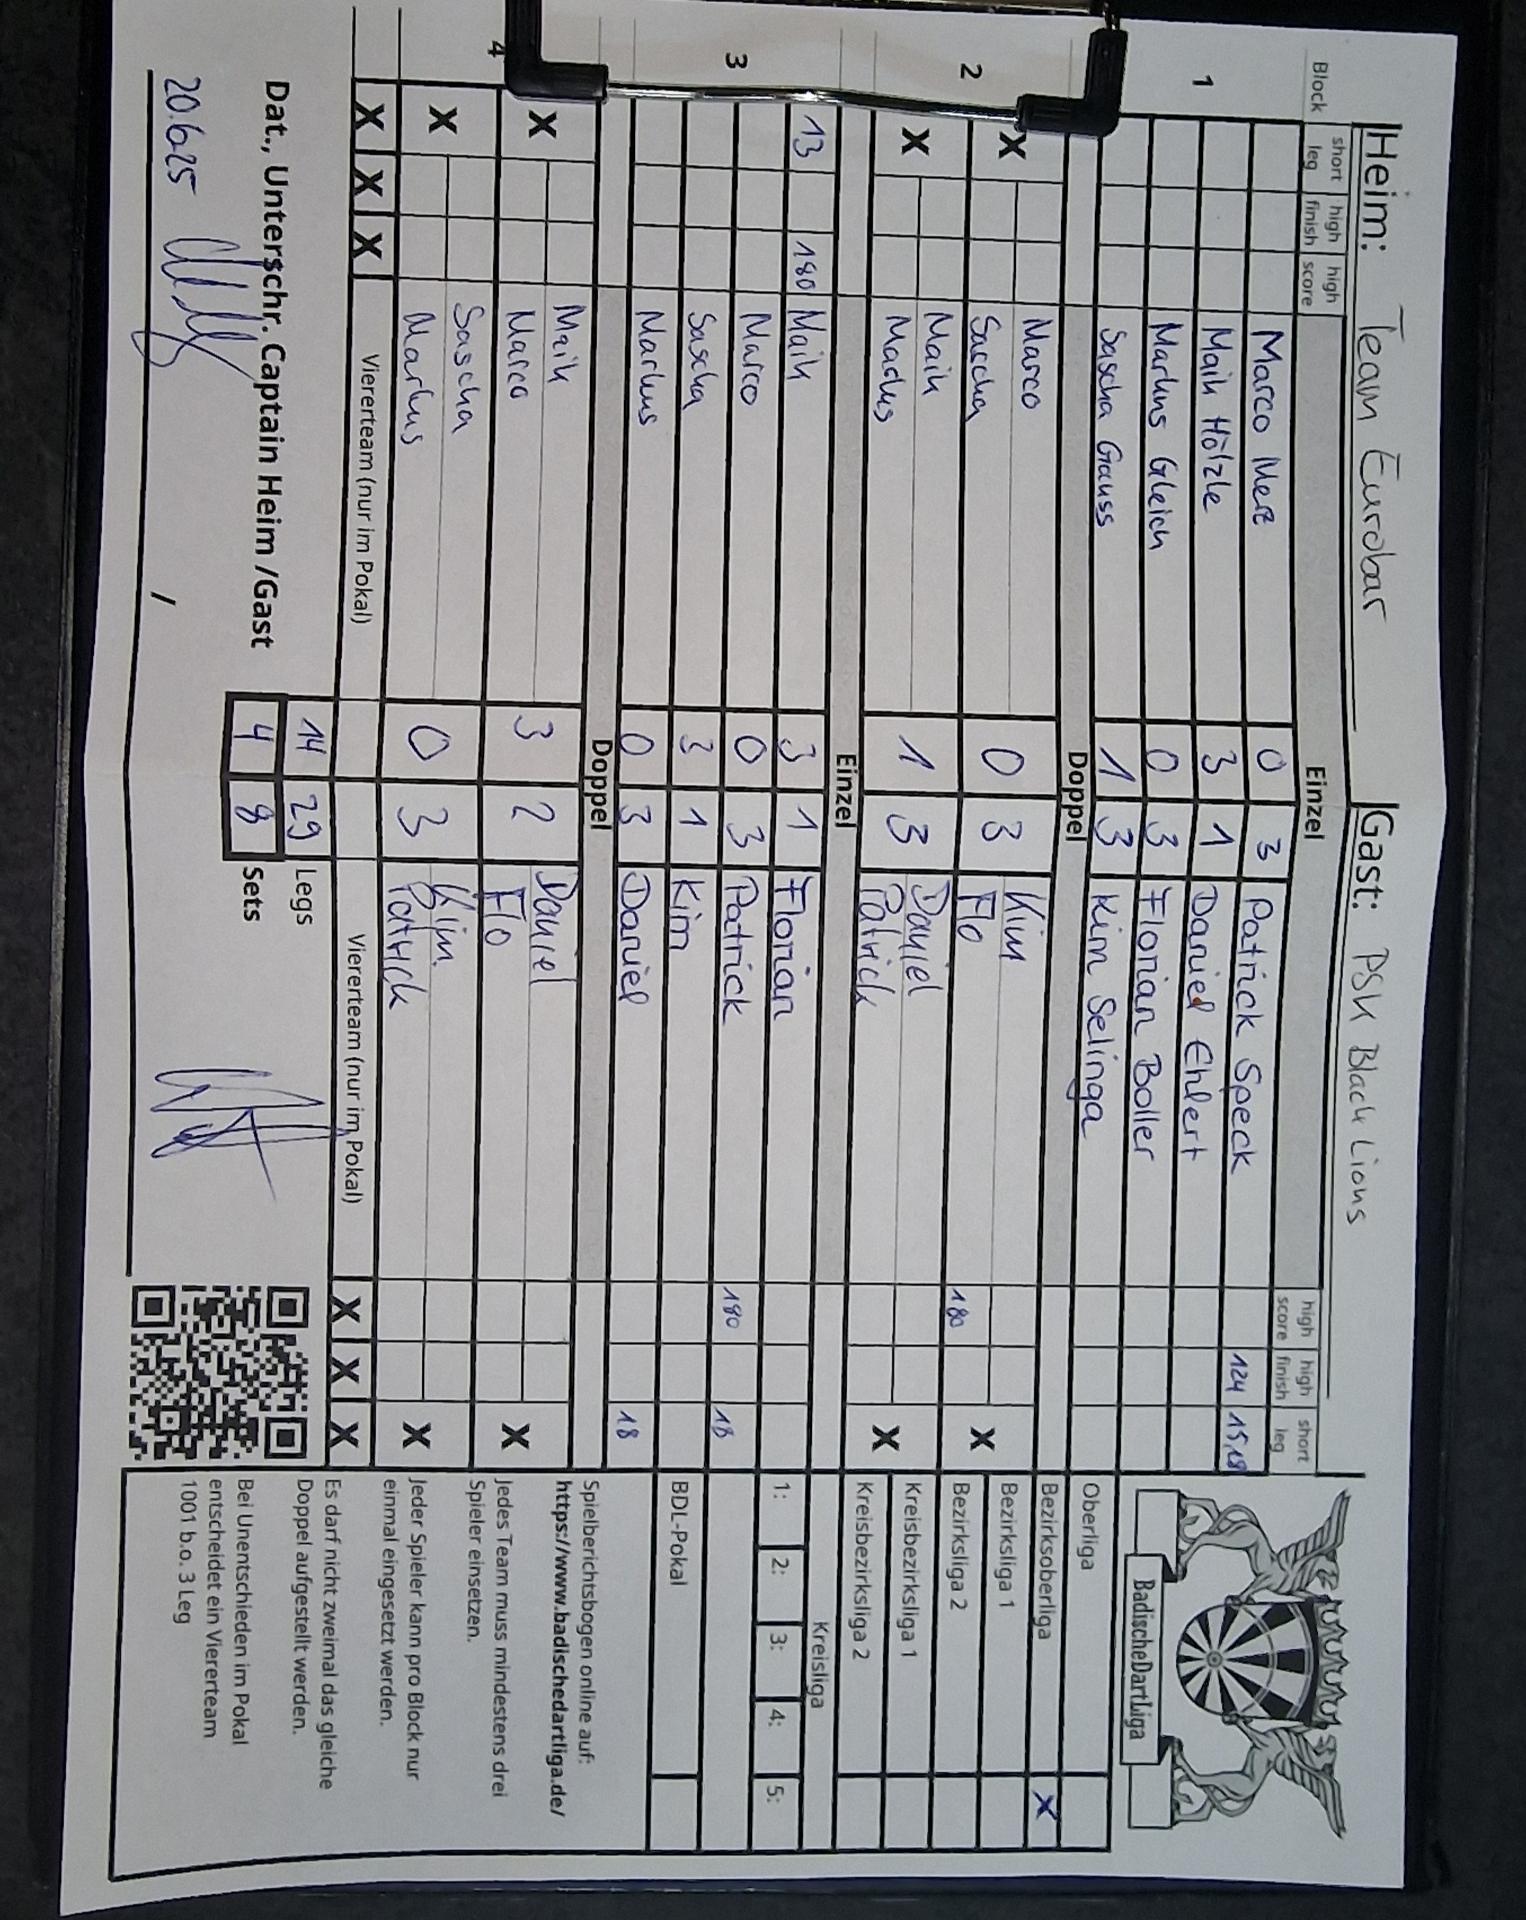 Heim: Team Eurobar Gast: PSK Black Lions
Block short leg high finish high score Einzel high score high finish short leg
1 Marco Merz 0 3 Patrick Speck 124 15,18
Maik Hölzle 3 1 Daniel Ehlert
Markus Gleich 0 3 Florian Boller
Sascha Gauss 1 3 Kim Selinga
Doppel
2 X Marco 0 3 Kim X
Sascha Flo 180
X Maik 1 3 Daniel X
Markus Patrick
Einzel
3 13 180 Maik 3 1 Florian
Marco 0 3 Patrick 180 18
Sascha 3 1 Kim
Markus 0 3 Daniel 18
Doppel
4 X Maik 3 2 Daniel X
Marco Flo
X Sascha 0 3 Kim X
Markus Patrick
X X X Viererteam (nur im Pokal) Viererteam (nur im Pokal) X X X
14 29 Legs
Dat., Unterschr. Captain Heim /Gast 4 8 Sets
20.6.25 /
BadischeDartLiga
Oberliga
Bezirksoberliga X
Bezirksliga 1
Bezirksliga 2
Kreisbezirksliga 1
Kreisbezirksliga 2
Kreisliga
1: 2: 3: 4: 5:
BDL-Pokal
Spielberichtsbogen online auf:
https://www.badischedartliga.de/
Jedes Team muss mindestens drei
Spieler einsetzen.
Jeder Spieler kann pro Block nur
einmal eingesetzt werden.
Es darf nicht zweimal das gleiche
Doppel aufgestellt werden.
Bei Unentschieden im Pokal
entscheidet ein Viererteam
1001 b.o. 3 Leg